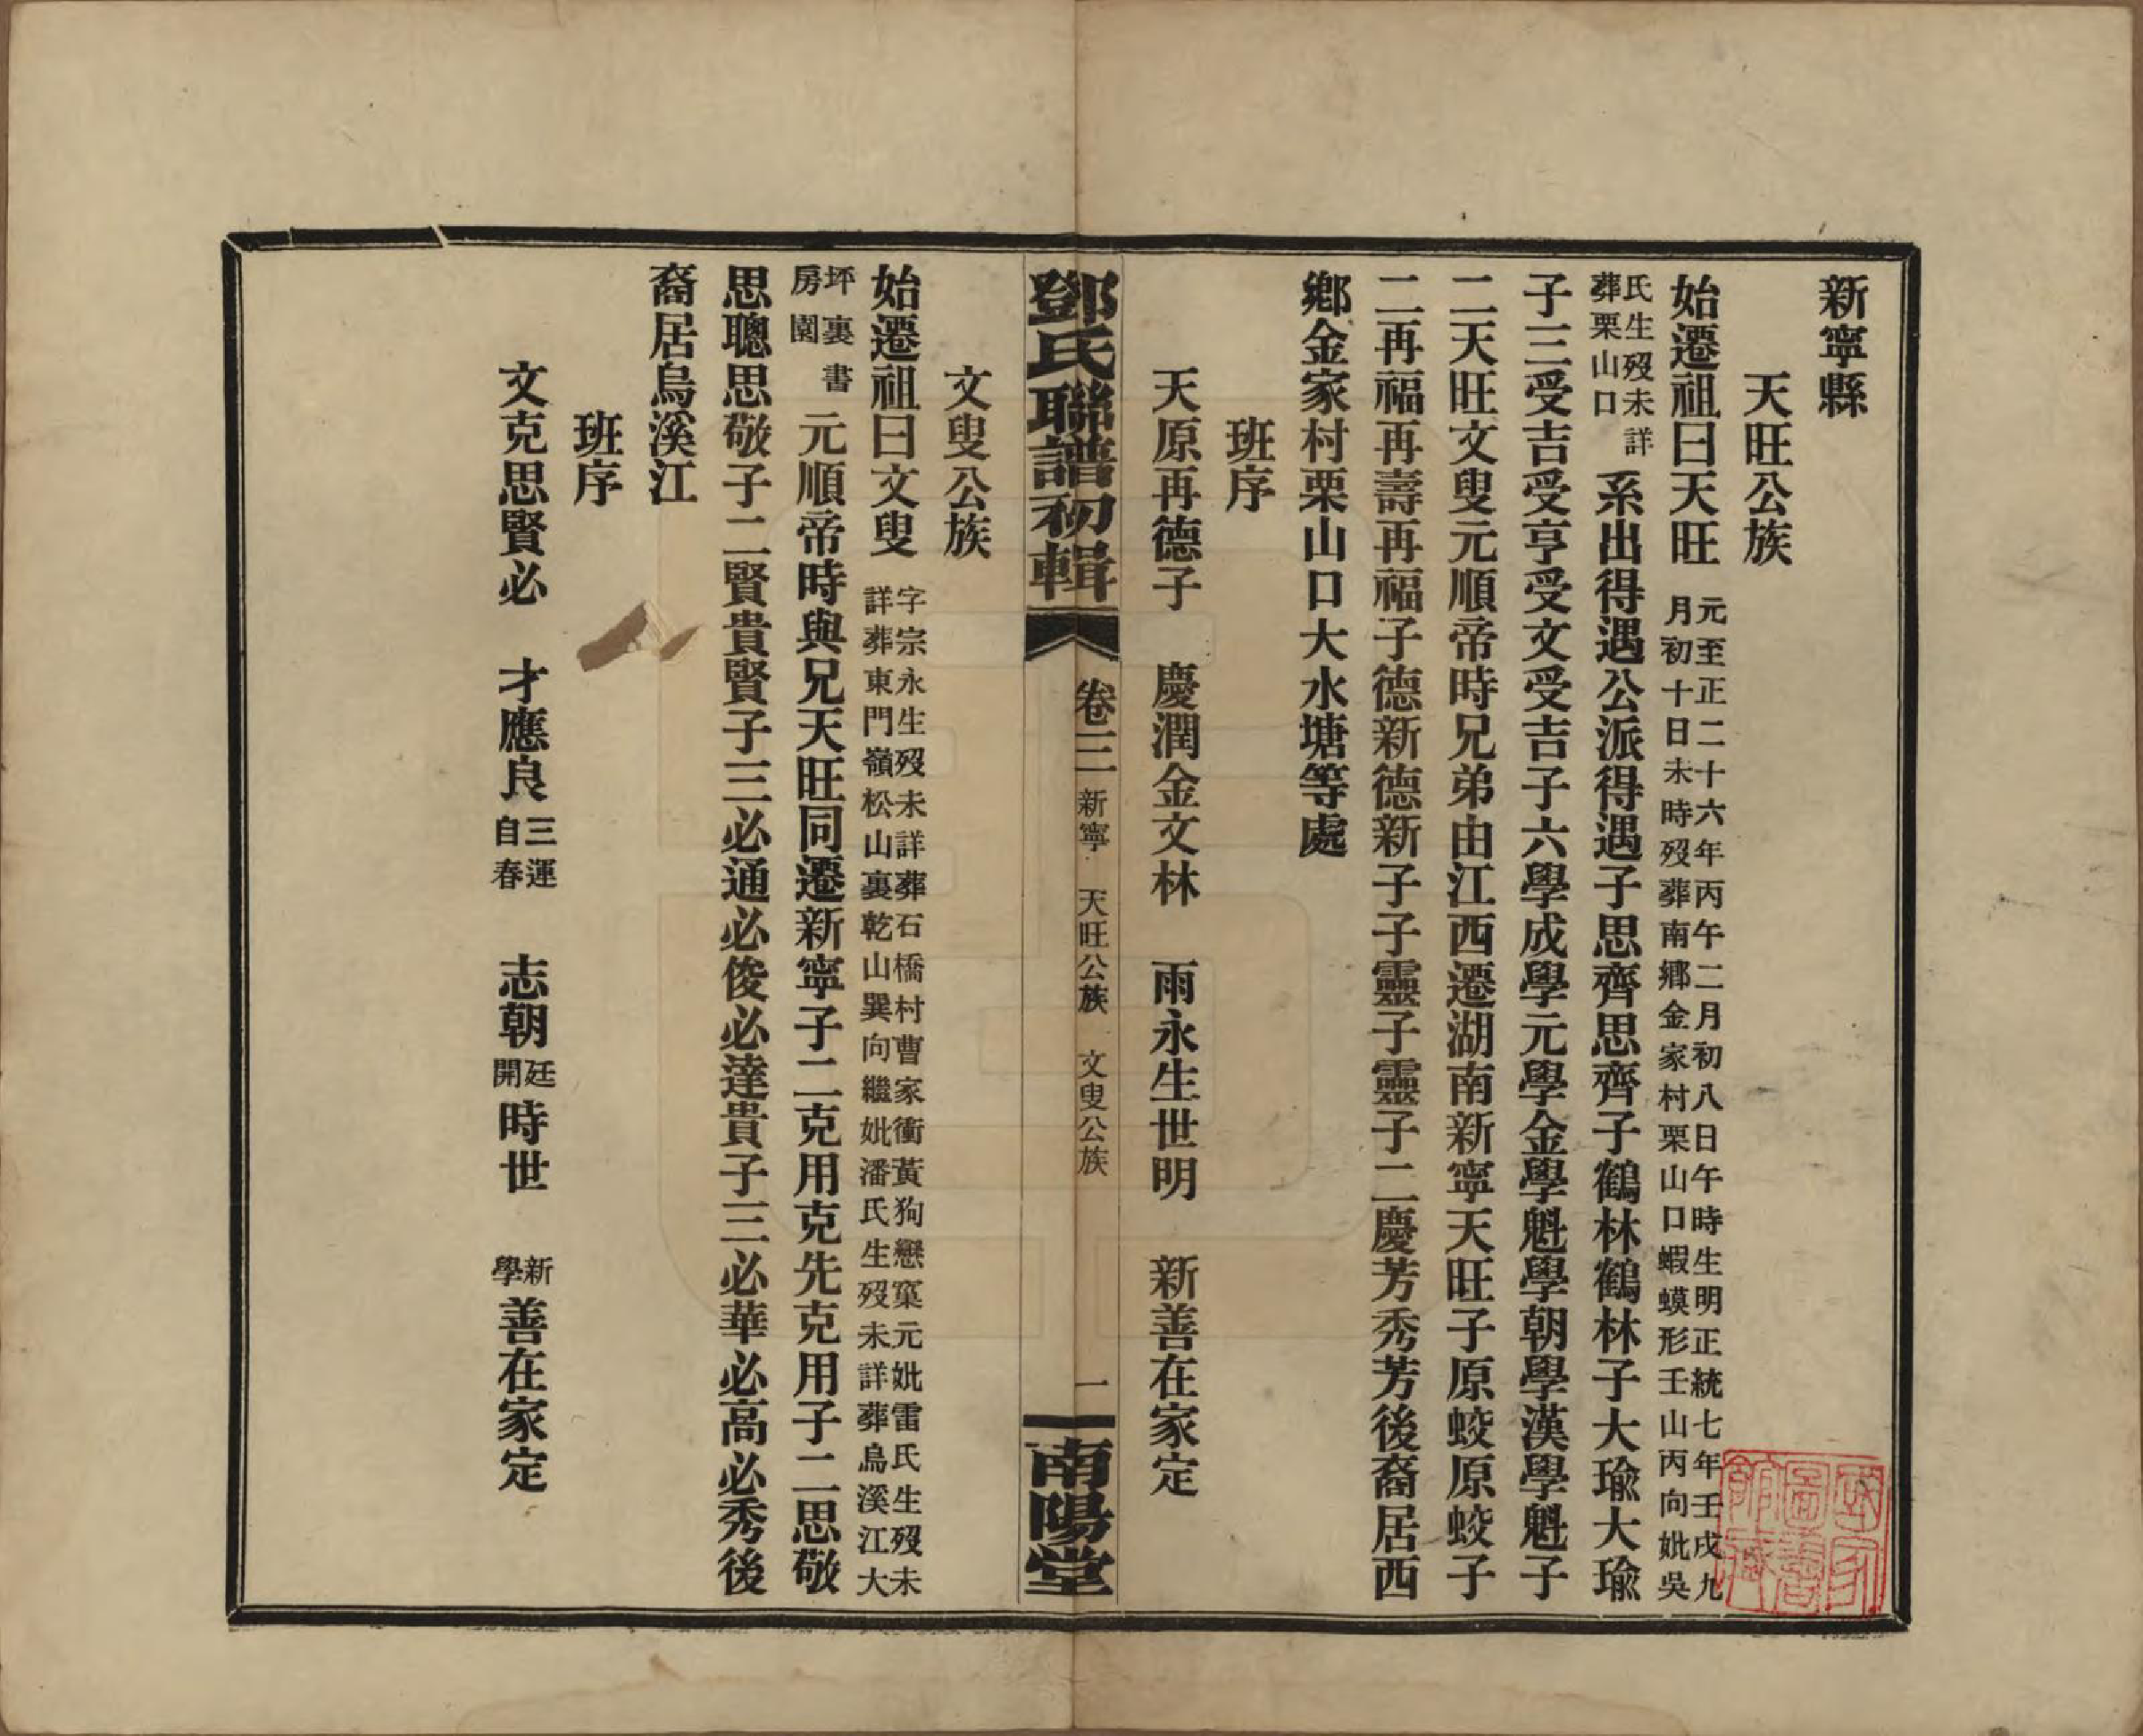 新寧縣
天旺公族
始遷祖曰天旺
元至正二十六年丙午二月初八日午時生明正統七年壬戌九
月初十日未時歿葬南鄉金家村栗山口蝦蟆形壬山丙向妣吳
氏生歿未詳
葬栗山口
系出得遇公派得遇子思齊思齊子鶴林鶴林子大瑜大瑜
子三受吉受亨受文受吉子六學成學元學金學魁學朝學漢學魁子
二天旺文叟元順帝時兄弟由江西遷湖南新寧天旺子原蛟原蛟子
二再福再壽再福子德新德新子子靈子靈子二慶芳秀芳後裔居西
鄉金家村栗山口大水塘等處
班序
天原再德子 慶潤金文林 雨永生世明 新善在家定
鄧氏聯譜初輯 卷三 新寧 天旺公族 文叟公族 一 南陽堂
文叟公族
始遷祖曰文叟
字宗永生歿未詳葬石橋村曹家衝黃狗戀窠元妣雷氏生歿未
詳葬東門嶺松山裏乾山巽向繼妣潘氏生歿未詳葬烏溪江大
坪裏書
房園
元順帝時與兄天旺同遷新寧子二克用克先克用子二思敬
思聰思敬子二賢貴賢子三必通必俊必達貴子三必華必高必秀後
裔居烏溪江
班序
文克思賢必 才應良 三運 自春 志朝 廷 開 時世 新 學 善在家定